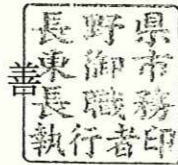 善
長野県
東御市
長職務
執行者印